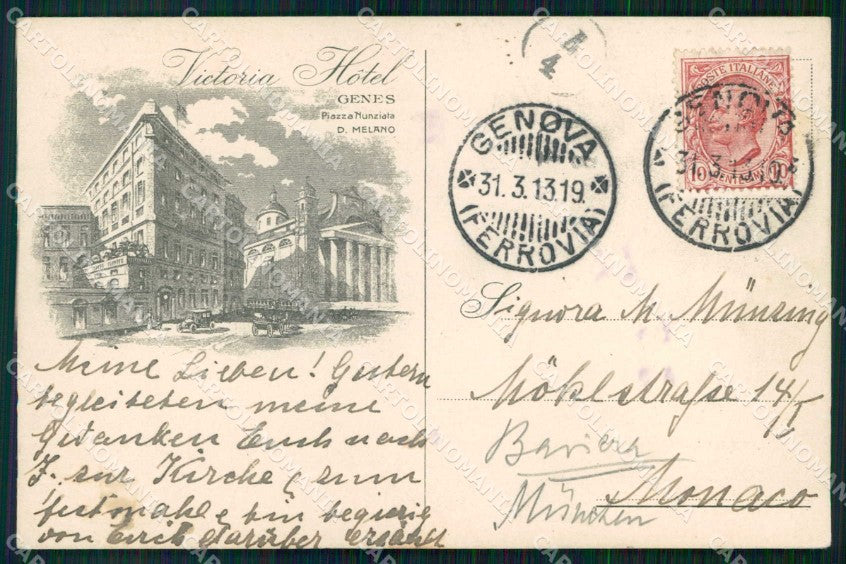 Victoria Hôtel
GENES
Piazza Nunziata
D. MELANO
Meine Lieben! Gestern
begleiteten meine
Gedanken Euch nach
F. zur Kirche & zum
Festmahle & bin begierig
von Euch darüber erzählt
4
GENOVA
31.3.13.19
(FERROVIA)
POSTE ITALIANE
GENOVA
31.3.13.19
(FERROVIA)
Signora M. Münzing
Möhlstraße 14/I
Baviera
Monaco
München
CARTOLINOMANIA